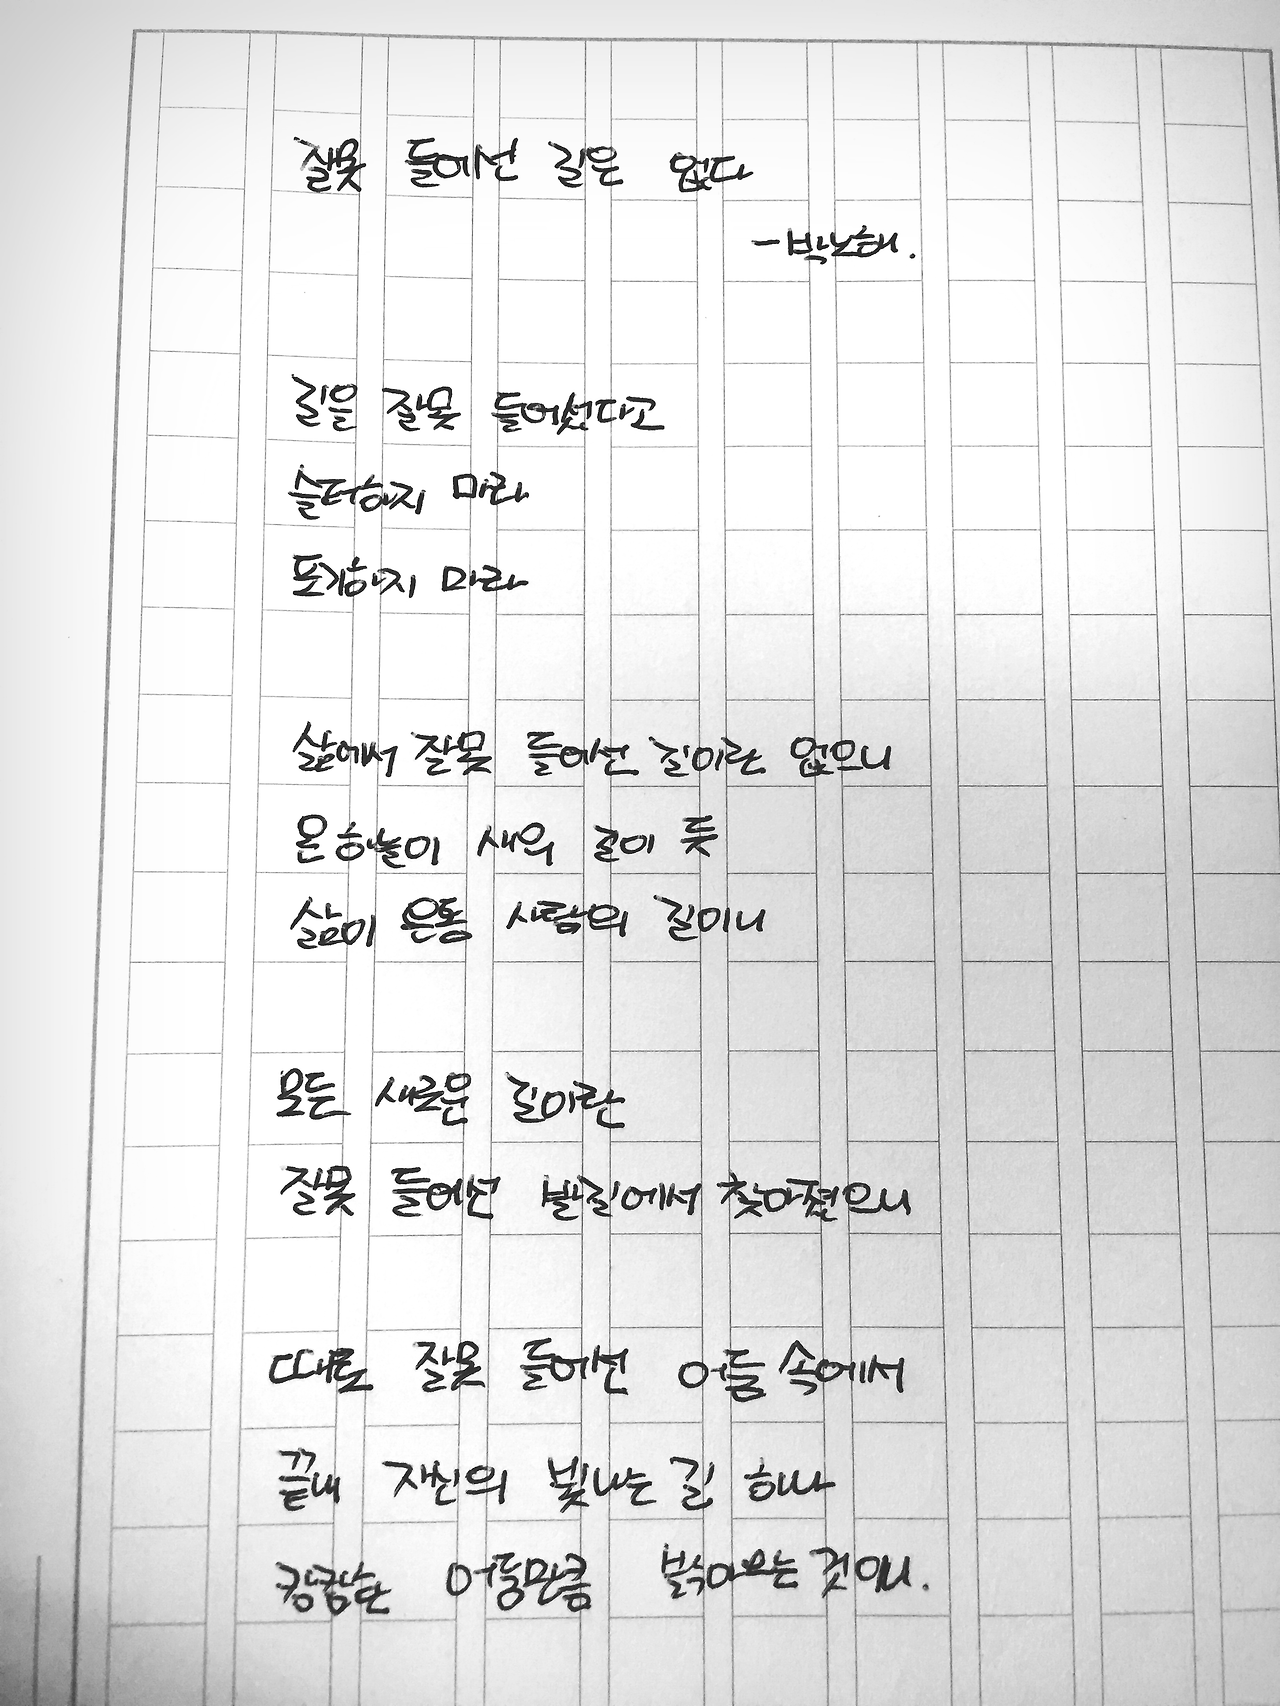 잘못 들어선 길은 없다
-박노해.
길을 잘못 들어섰다고
슬퍼하지 마라
포기하지 마라
삶에서 잘못 들어선 길이란 없으니
온 하늘이 새의 길이 듯
삶이 온통 사람의 길이니
모든 새로운 길이란
잘못 들어선 발길에서 찾아졌으니
때로 잘못 들어선 어둠 속에서
끝내 자신의 빛나는 길 하나
캄캄한 어둠만큼 밝아오는 것이니.